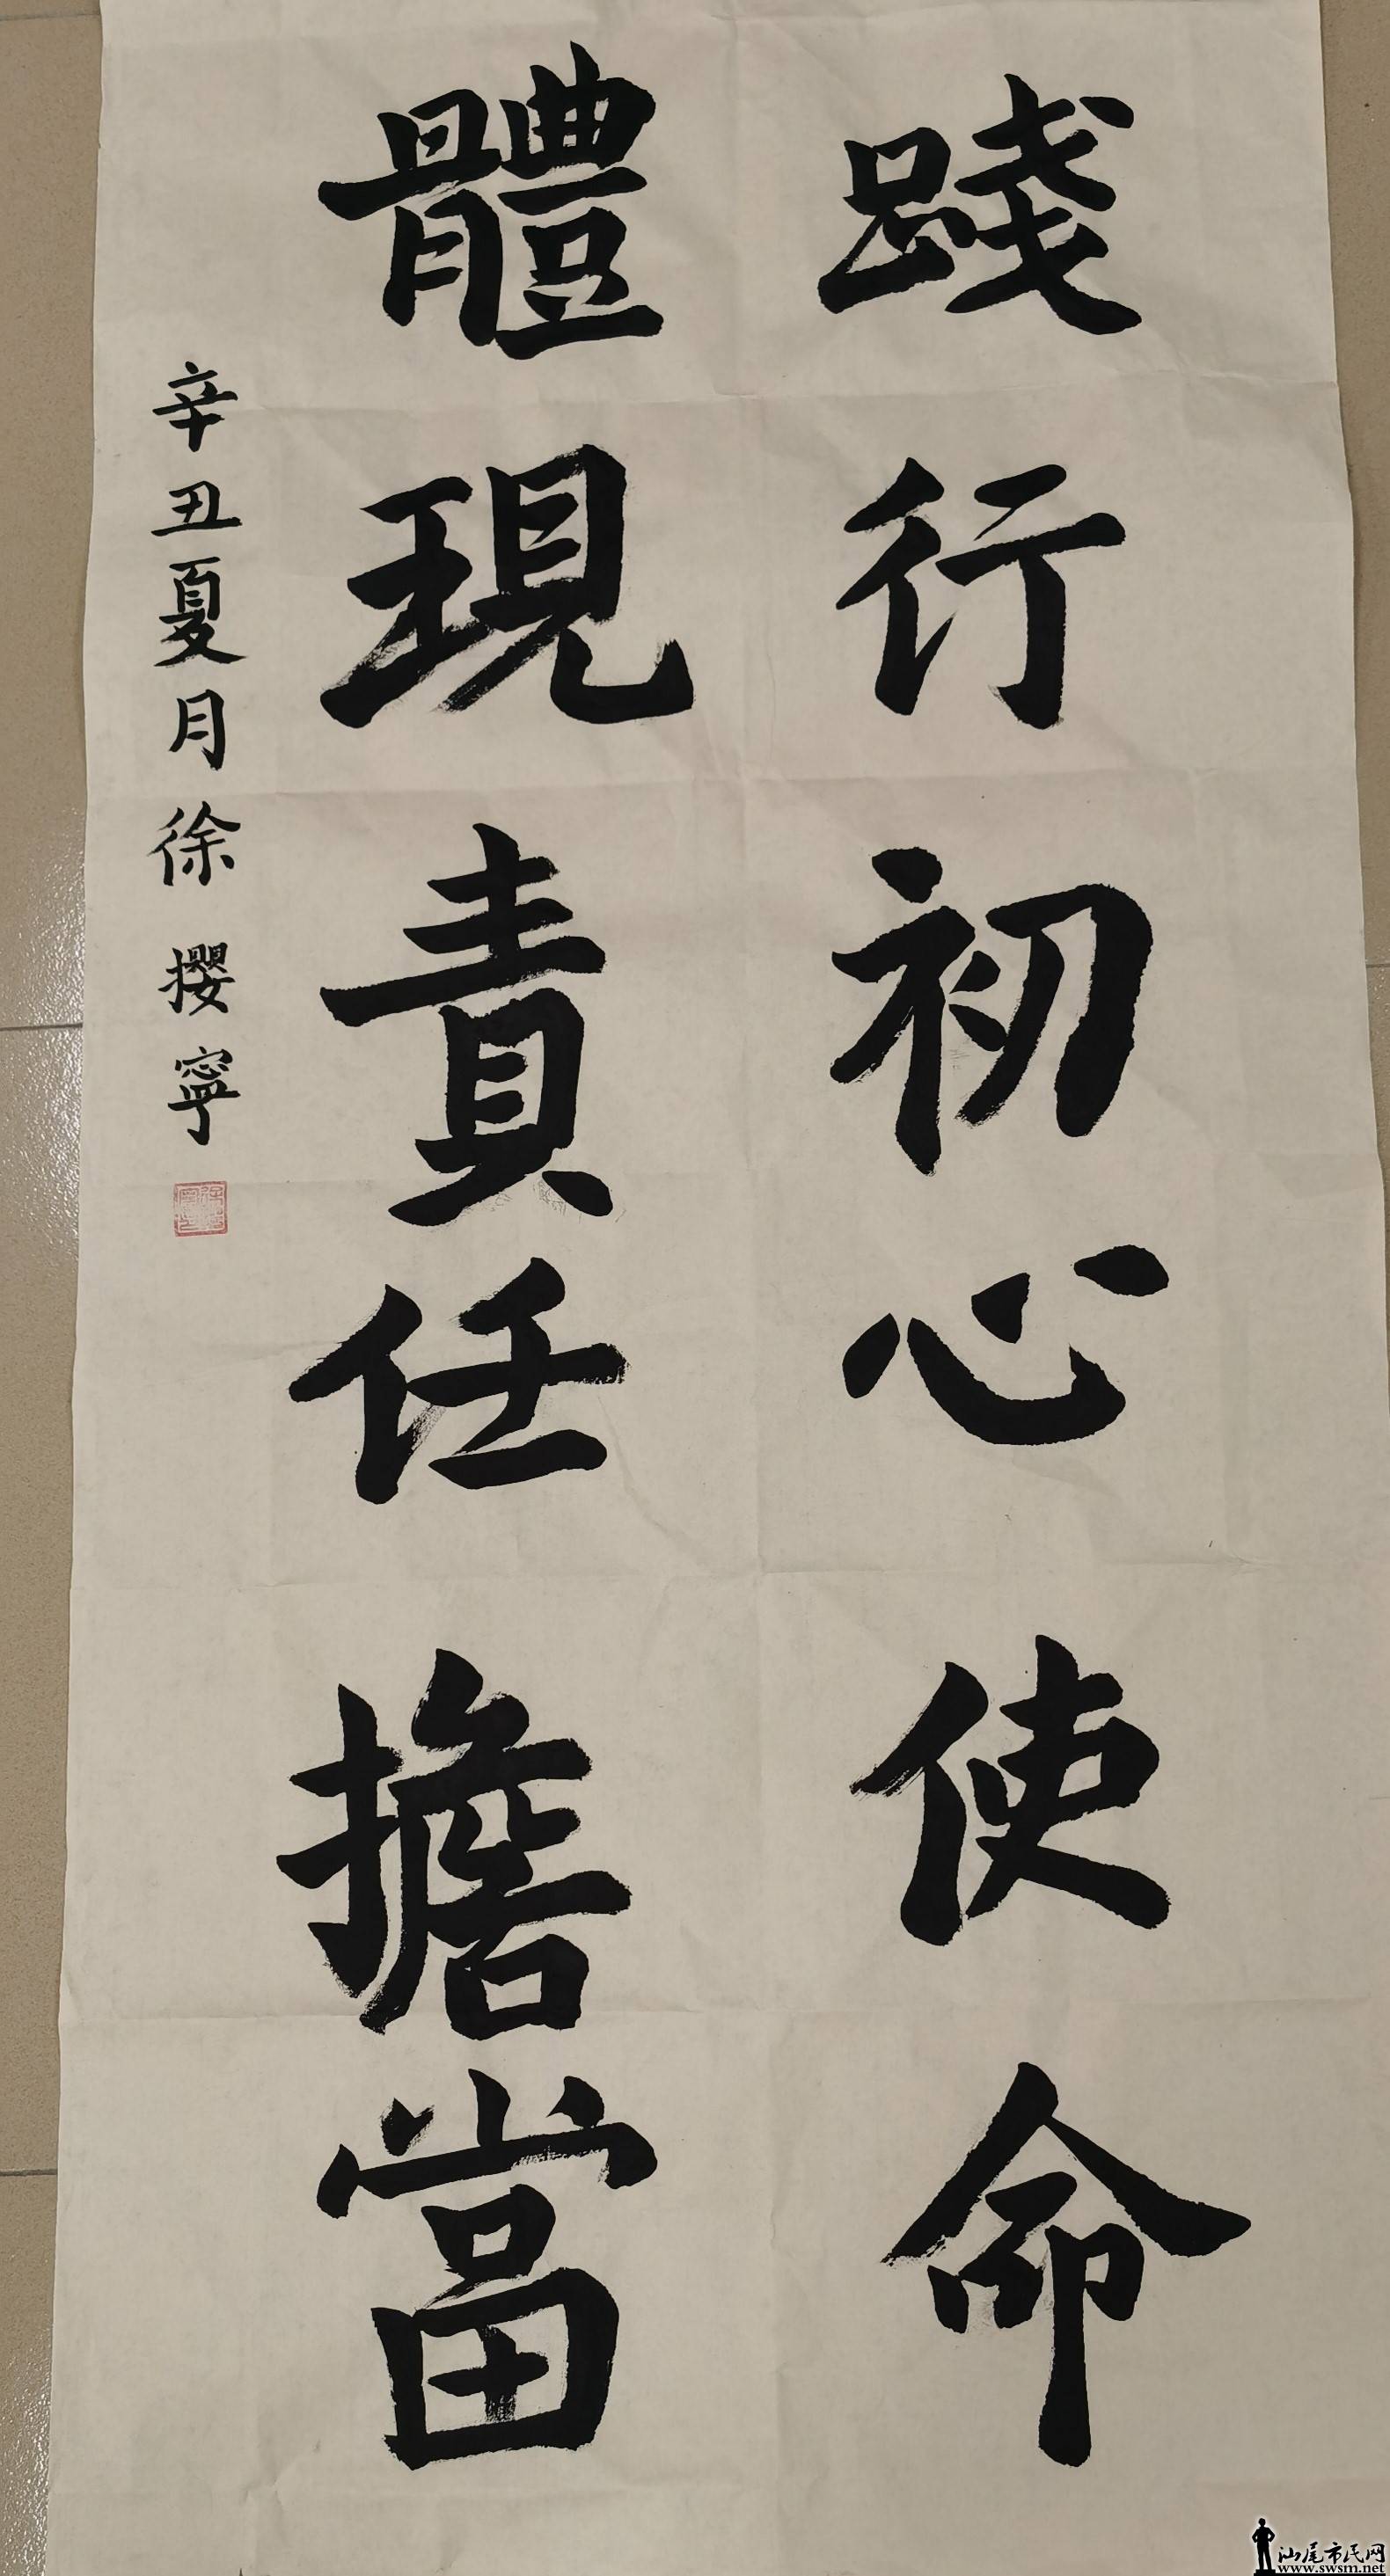 踐行初心使命
體現責任擔當
辛丑夏月徐攖寧
汕尾市民网
www.swsm.net